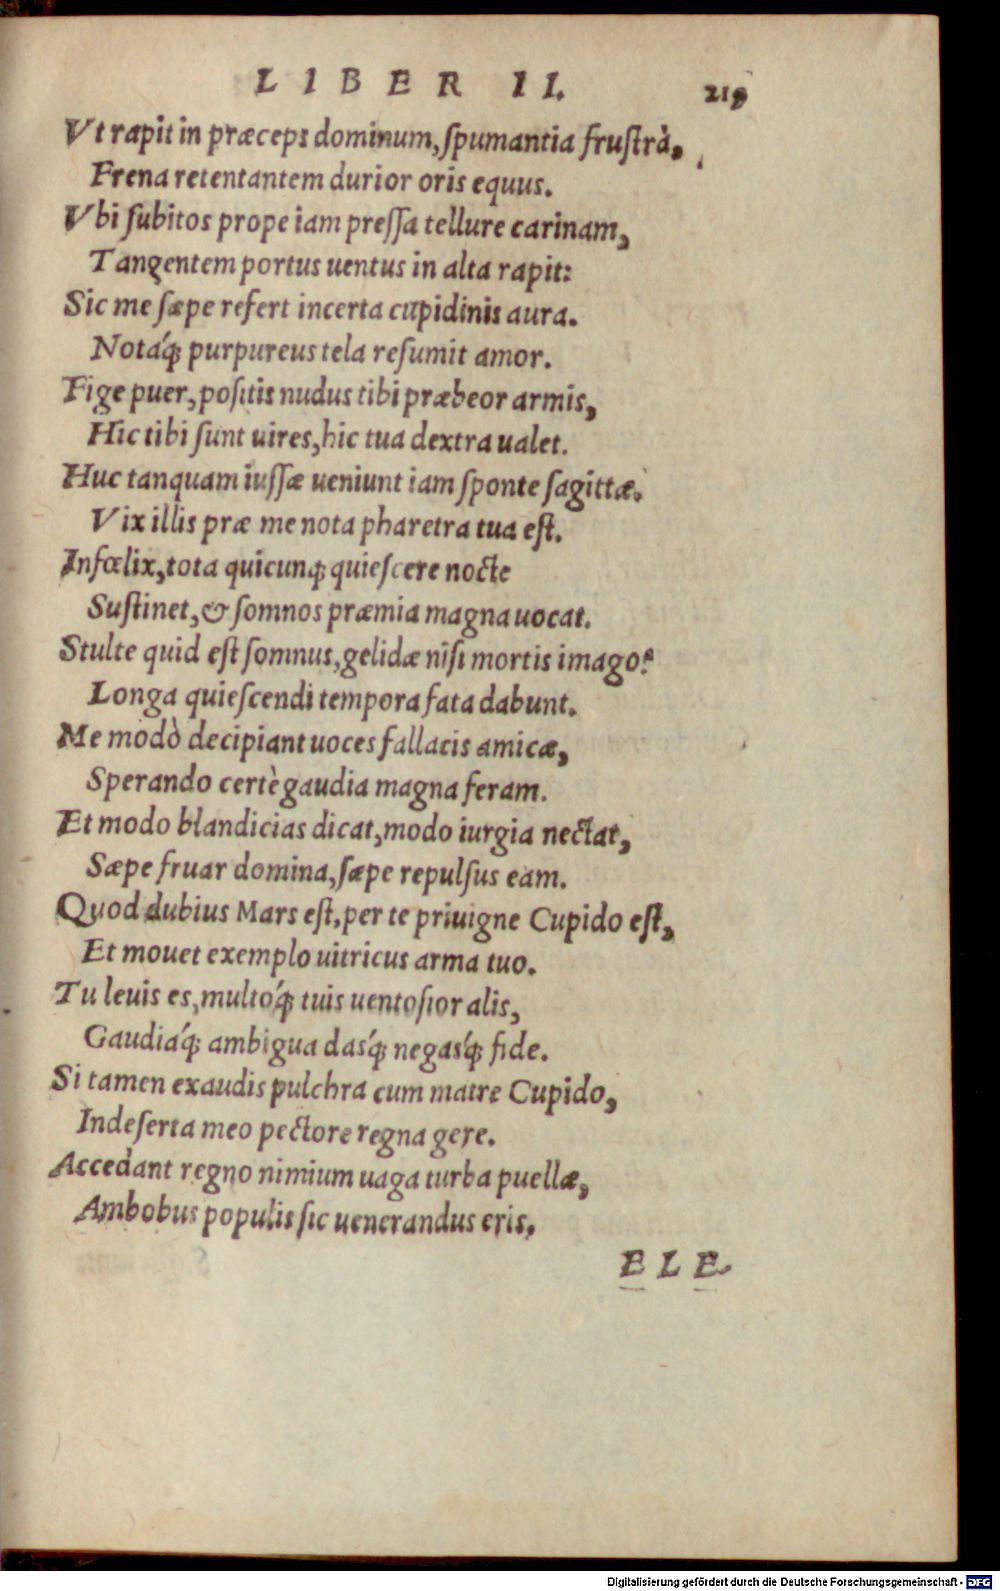 LIBER II. 219
Vt rapit in præceps dominum, ſpumantia fruſtrà,
Frena retentantem durior oris equus.
Vbi ſubitos prope iam preſſa tellure carinam,
Tangentem portus uentus in alta rapit:
Sic me ſæpe refert incerta cupidinis aura.
Notáq; purpureus tela reſumit amor.
Fige puer, poſitis nudus tibi præbeor armis,
Hic tibi ſunt uires, hic tua dextra ualet.
Huc tanquam iuſſæ ueniunt iam ſponte ſagittæ.
Vix illis præ me nota pharetra tua eſt.
Infœlix, tota quicunq; quieſcere nocte
Suſtinet, & ſomnos præmia magna uocat.
Stulte quid eſt ſomnus, gelidæ niſi mortis imago?
Longa quieſcendi tempora fata dabunt.
Me modò decipiant uoces fallacis amicæ,
Sperando certè gaudia magna feram.
Et modo blandicias dicat, modo iurgia nectat,
Sæpe fruar domina, ſæpe repulſus eam.
Quod dubius Mars eſt, per te priuigne Cupido eſt,
Et mouet exemplo uitricus arma tuo.
Tu leuis es, multóq; tuis uentoſior alis,
Gaudiáq; ambigua dasq́; negasq́; fide.
Si tamen exaudis pulchra cum matre Cupido,
Indeſerta meo pectore regna gere.
Accedant regno nimium uaga turba puellæ,
Ambobus populis ſic uenerandus eris.
ELE
Digitalisierung gefördert durch die Deutsche Forschungsgemeinschaft - DFG